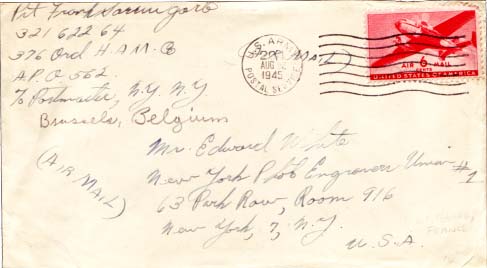 Pvt. Frank
321 622 64
376 Ord. H.A.M. Co
A.P.O 562.
℅ Postmaster, N.Y. N.Y
Brussels, Belgium
(AIR MAIL)
U.S. ARMY
AUG
1945
POSTAL SERVICE
AIR 6 MAIL
CENTS
UNITED STATES OF AMERICA
Mr. Edward White
New York Photo Engravers Union #1
63 Park Row, Room 916
New York, 7, N.Y.
U.S.A.
FRANCE